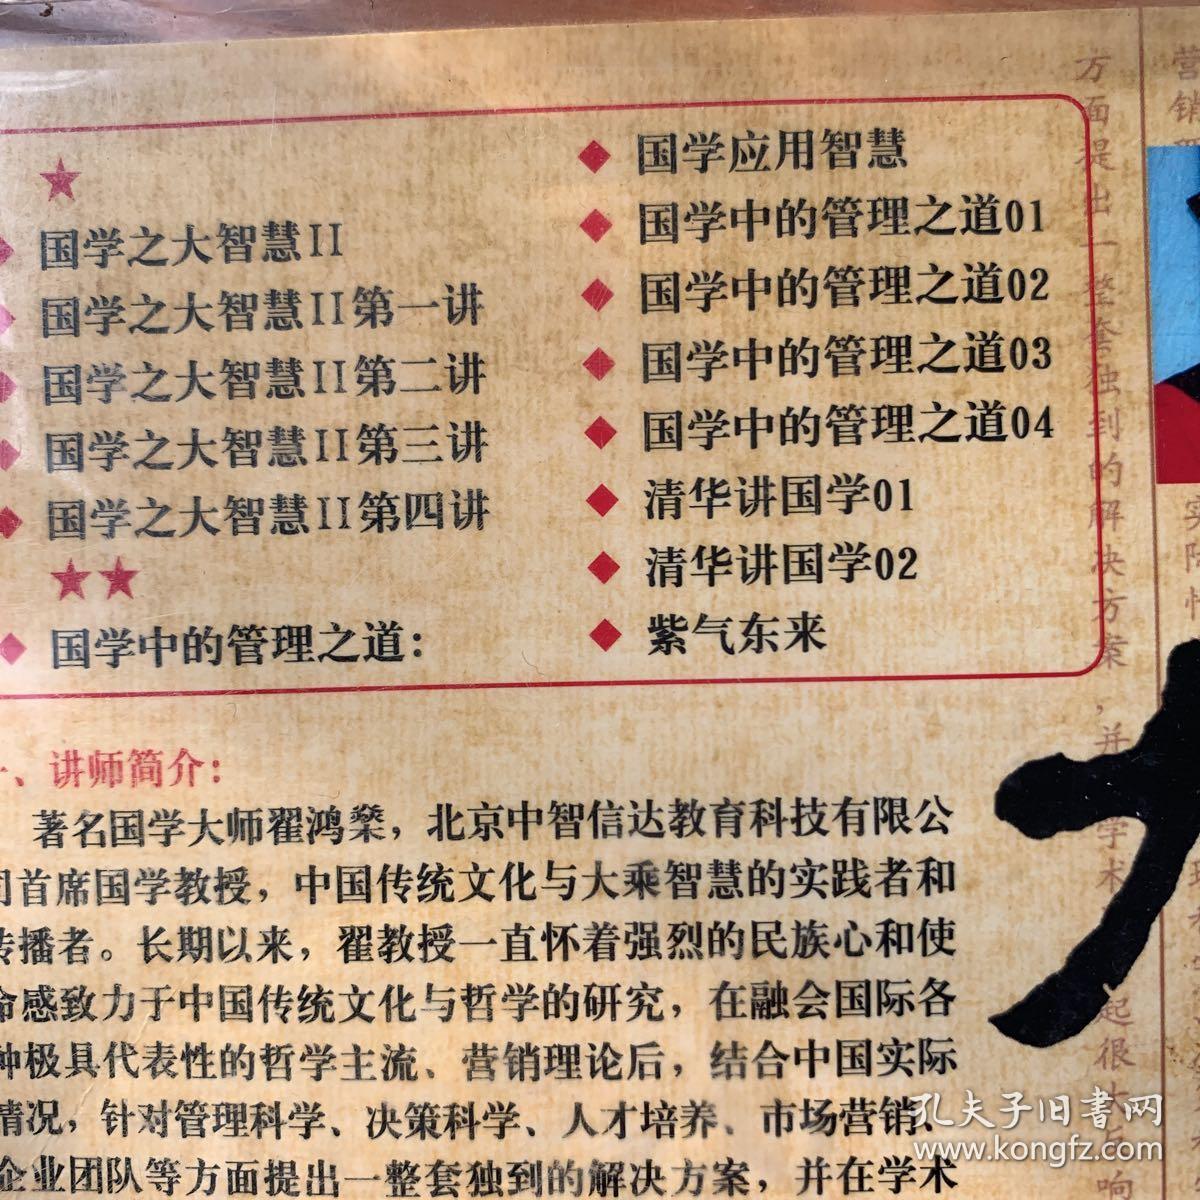 国学之大智慧II
国学之大智慧II第一讲
国学之大智慧II第二讲
国学之大智慧II第三讲
国学之大智慧II第四讲
国学中的管理之道:
国学应用智慧
国学中的管理之道01
国学中的管理之道02
国学中的管理之道03
国学中的管理之道04
清华讲国学01
清华讲国学02
紫气东来
一、讲师简介:
著名国学大师翟鸿燊，北京中智信达教育科技有限公
司首席国学教授，中国传统文化与大乘智慧的实践者和
传播者。长期以来，翟教授一直怀着强烈的民族心和使
命感致力于中国传统文化与哲学的研究，在融会国际各
种极具代表性的哲学主流、营销理论后，结合中国实际
情况，针对管理科学、决策科学、人才培养、市场营销、
企业团队等方面提出一整套独到的解决方案，并在学术
方面提出一整套独到的解决方案，并
学术
起很大
响
营销
实际情
孔夫子旧書网
www.kongfz.com